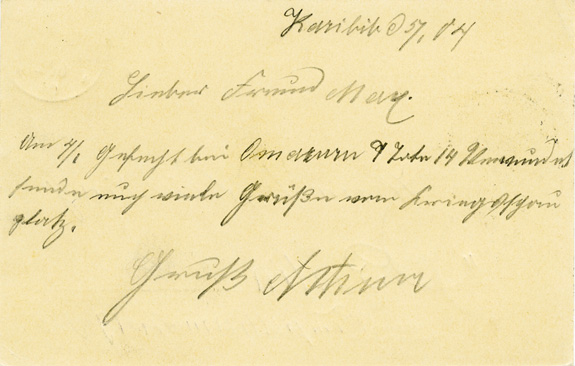 Karibib d 5/1 04
Lieber Freund Max.
Am 4/1 Gefecht bei Omaruru 7 Tote 14 Verwundet
sende euch viele Grüße vom Kriegsschau
platz.
Gruß